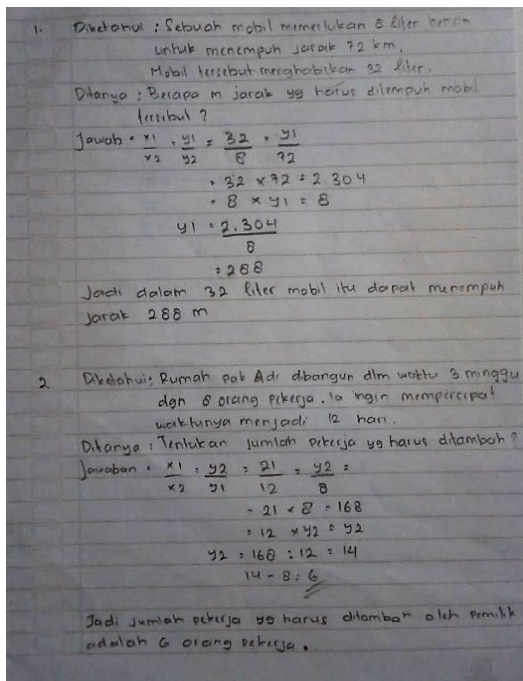 1. Diketahui : Sebuah mobil memerlukan 8 liter bensin
untuk menempuh jarak 72 km,
Mobil tersebut menghabiskan 32 liter.
Ditanya : Berapa m jarak yg harus ditempuh mobil
tersebut ?
Jawab = x1/x2 = y1/y2 = 32/8 = y1/72
= 32 x 72 = 2.304
= 8 x y1 = 8
y1 = 2.304/8
= 288
Jadi dalam 32 liter mobil itu dapat menempuh
jarak 288 m
2 Diketahui : Rumah pak Adi dibangun dlm waktu 3 minggu
dgn 8 orang pekerja. Ia ingin mempercepat
waktunya menjadi 12 hari.
Ditanya : Tentukan jumlah pekerja yg harus ditambah ?
Jawaban = x1/x2 = y2/y1 = 21/12 = y2/8 =
= 21 x 8 = 168
= 12 x y2 = y2
y2 = 168 : 12 = 14
14 - 8 = 6
Jadi jumlah pekerja yg harus ditambah oleh pemilik
adalah 6 orang pekerja.